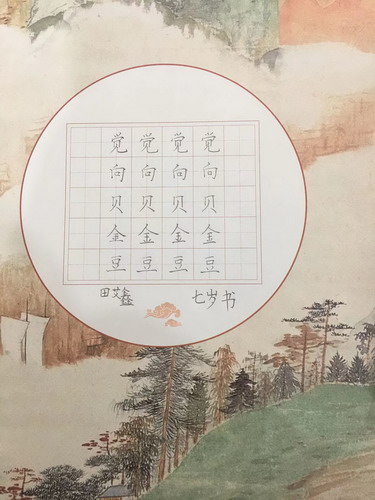 觉觉觉觉
向向向向
贝贝贝贝
金金金金
豆豆豆豆
田艾鑫 七岁书